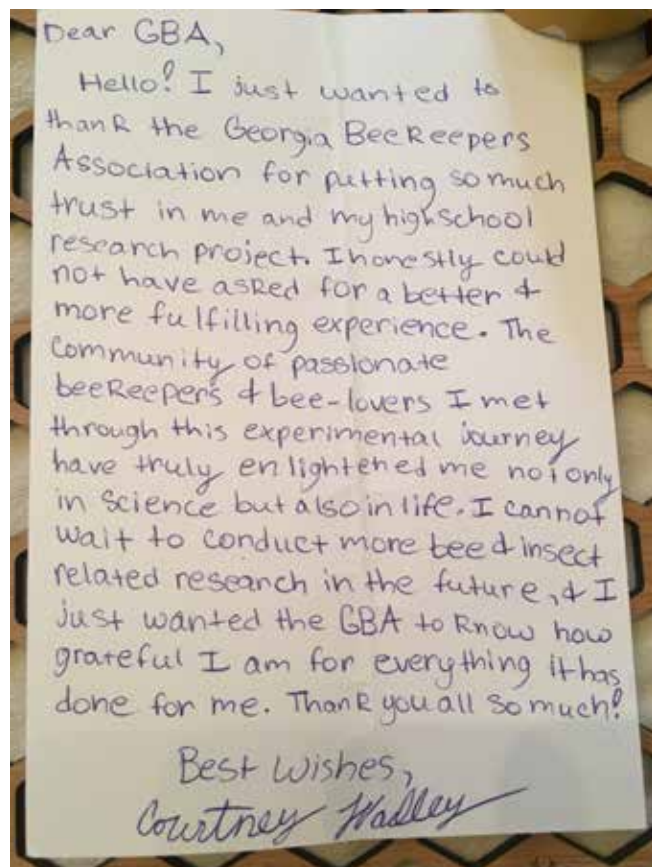 Dear GBA,
Hello! I just wanted to
thank the Georgia Beekeepers
Association for putting so much
trust in me and my highschool
research project. I honestly could
not have asked for a better &
more fulfilling experience. The
community of passionate
beekeepers & bee-lovers I met
through this experimental journey
have truly enlightened me not only
in science but also in life. I cannot
wait to conduct more bee & insect
related research in the future, & I
just wanted the GBA to know how
grateful I am for everything it has
done for me. Thank you all so much!
Best Wishes,
Courtney Wadley